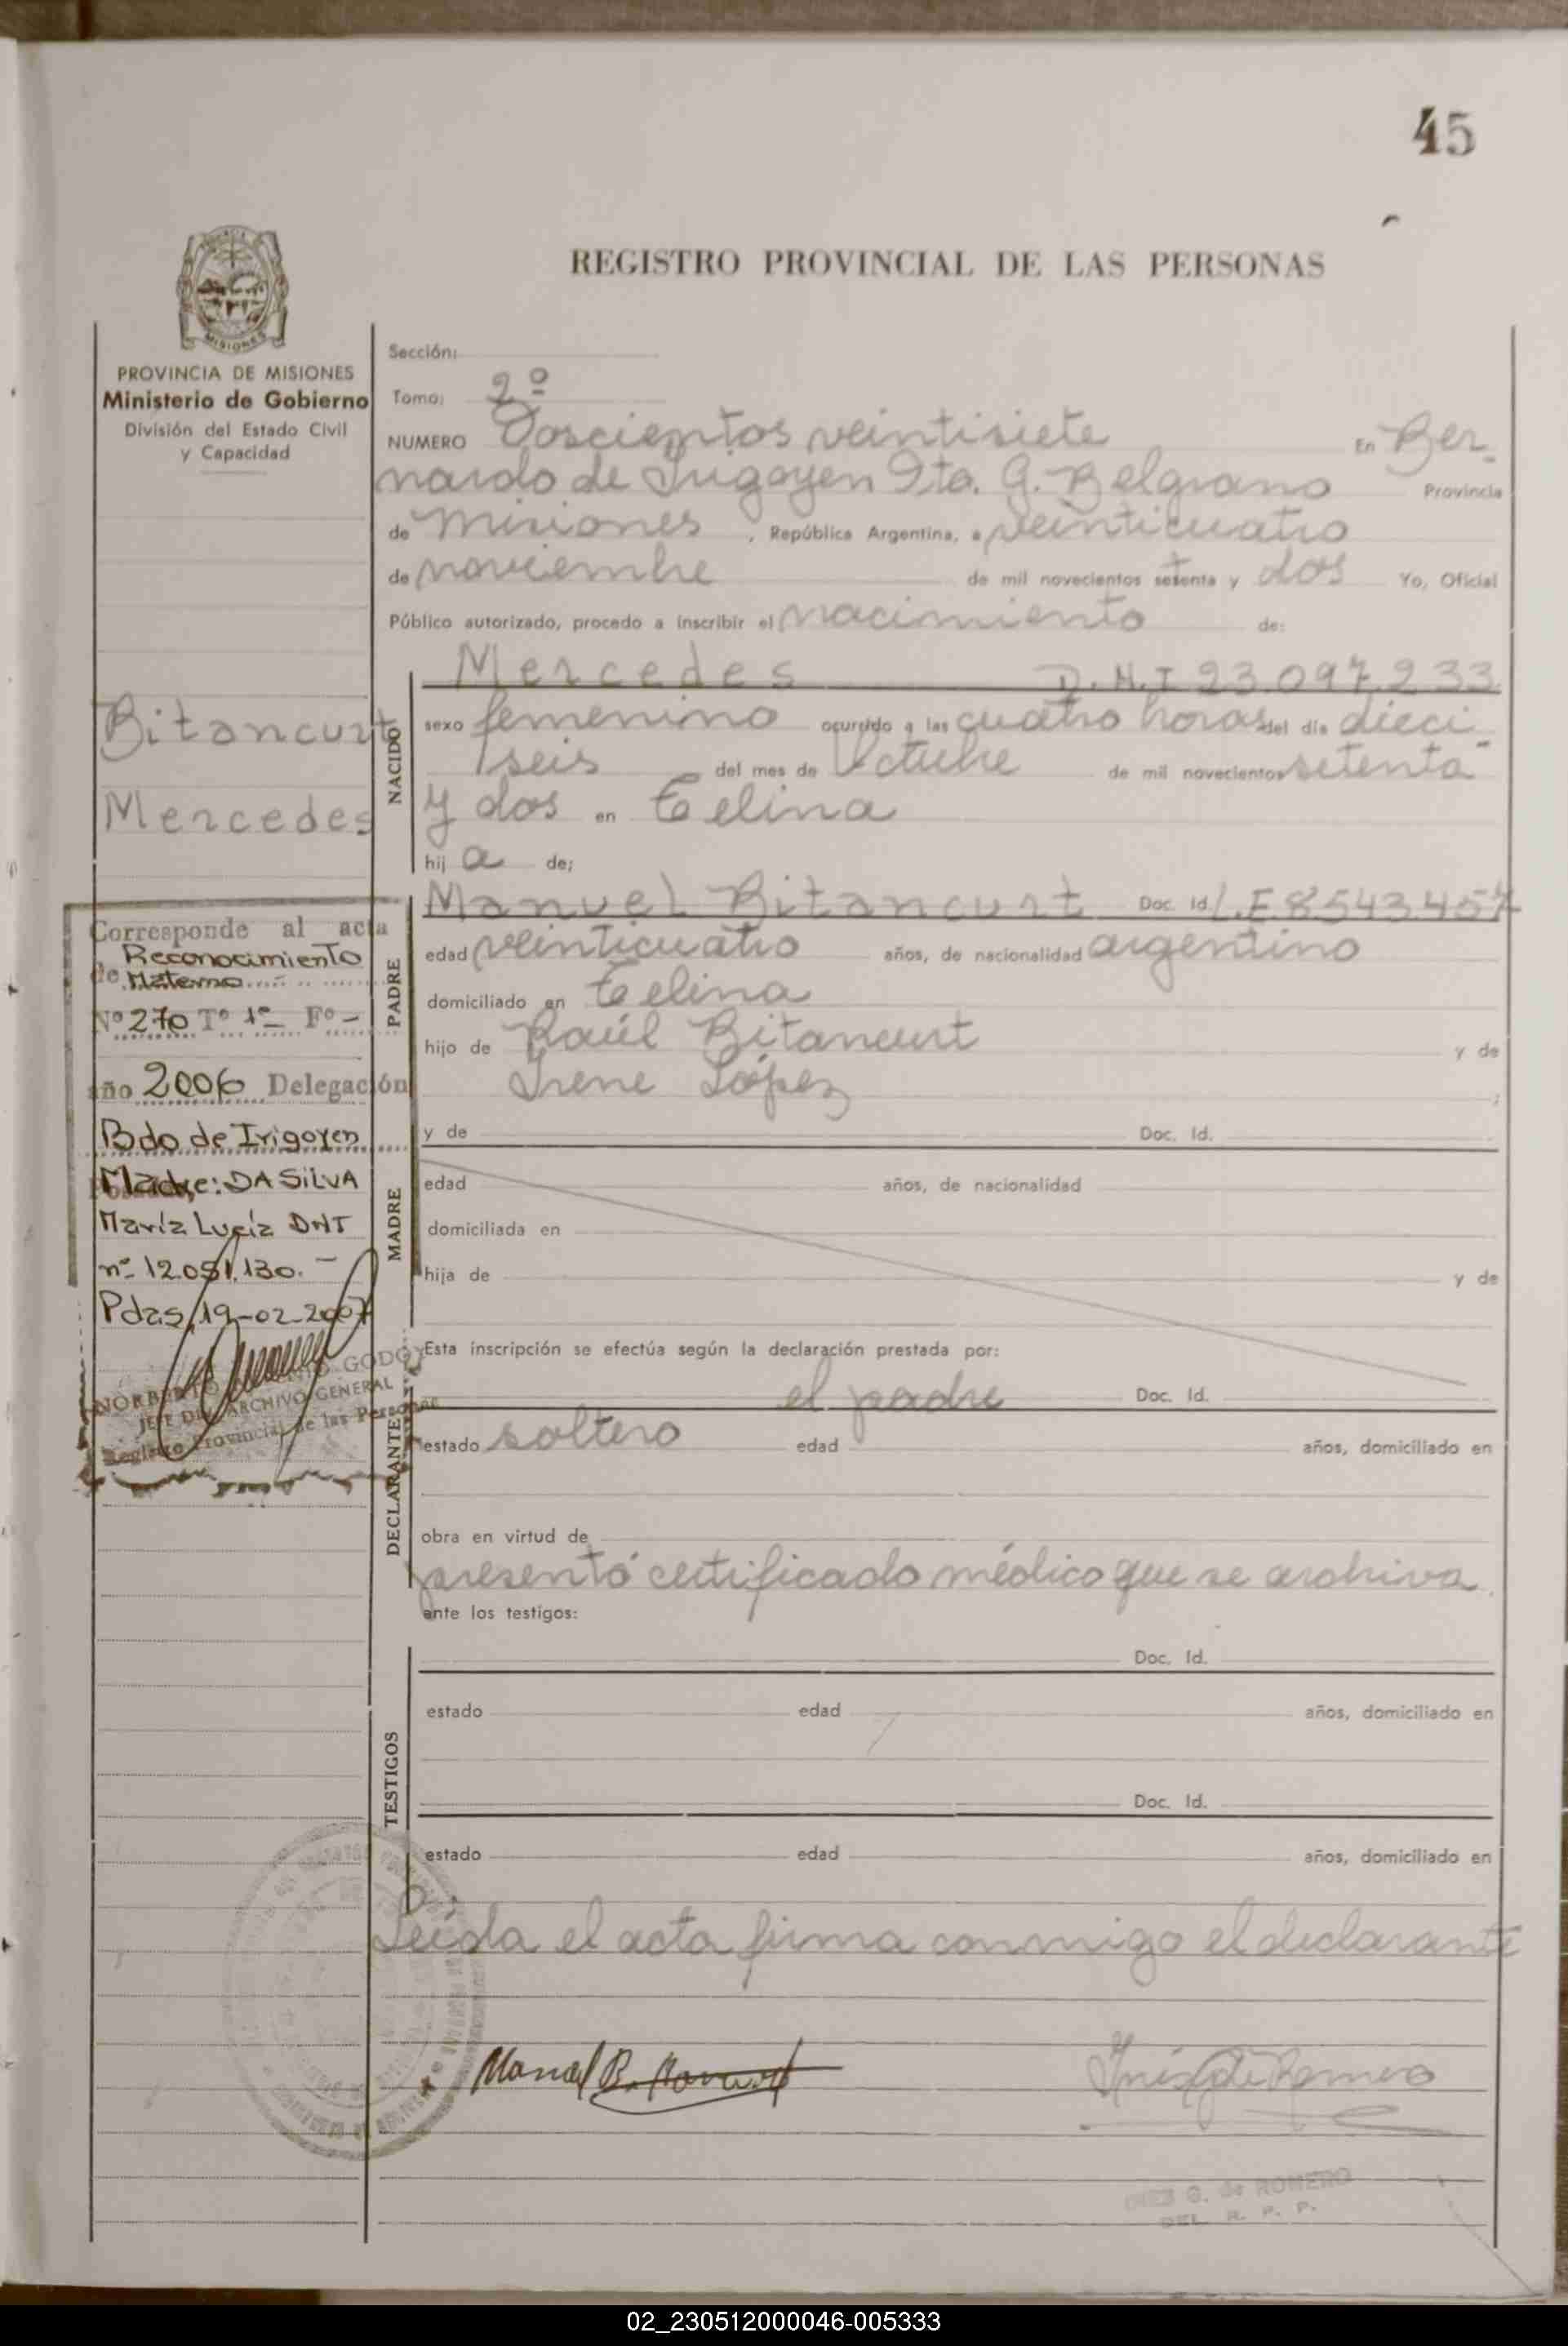 45
REGISTRO PROVINCIAL DE LAS PERSONAS
MISIONES
PROVINCIA DE MISIONES
Ministerio de Gobierno
División del Estado Civil
y Capacidad
Sección:
Tomo: 2º
NUMERO Doscientos veintisiete En Ber-
nardo de Irigoyen Dto. G. Belgrano Provincia
de Misiones, República Argentina, a veinticuatro
de noviembre de mil novecientos setenta y dos Yo, Oficial
Público autorizado, procedo a inscribir el nacimiento de:
Bitancurt
Mercedes
NACIDO
Mercedes D.N.I 23.097.233.
sexo femenino ocurrido a las cuatro horas del día dieci-
seis del mes de Octubre de mil novecientos setenta
y dos en Celina
hij a de:
PADRE
Manuel Bitancurt Doc. Id. L.E 8543.457
edad veinticuatro años, de nacionalidad argentino
domiciliado en Celina
hijo de Raúl Bitancurt y de
Irene López
Corresponde al acta
Reconocimiento
de Materno
Nº 270 Tº 1º Fº -
año 2006 Delegación
Bdo de Irigoyen
Madre: DA SILVA
María Lucía DNI
nº 12.051.130.-
Pdas, 19-02-2007
GODOY
JEFE DEL ARCHIVO GENERAL
Registro Provincial de las Personas
MADRE
y de Doc. Id.
edad años, de nacionalidad
domiciliada en
hija de y de
DECLARANTE
Esta inscripción se efectúa según la declaración prestada por:
el padre Doc. Id.
estado soltero edad años, domiciliado en
obra en virtud de
presentó certificado médico que se archiva.
ante los testigos:
TESTIGOS
Doc. Id.
estado edad años, domiciliado en
Doc. Id.
estado edad años, domiciliado en
Leída el acta firma conmigo el declarante
Manuel B.
G. de ROMERO
DEL R. P. P.
02_230512000046-005333